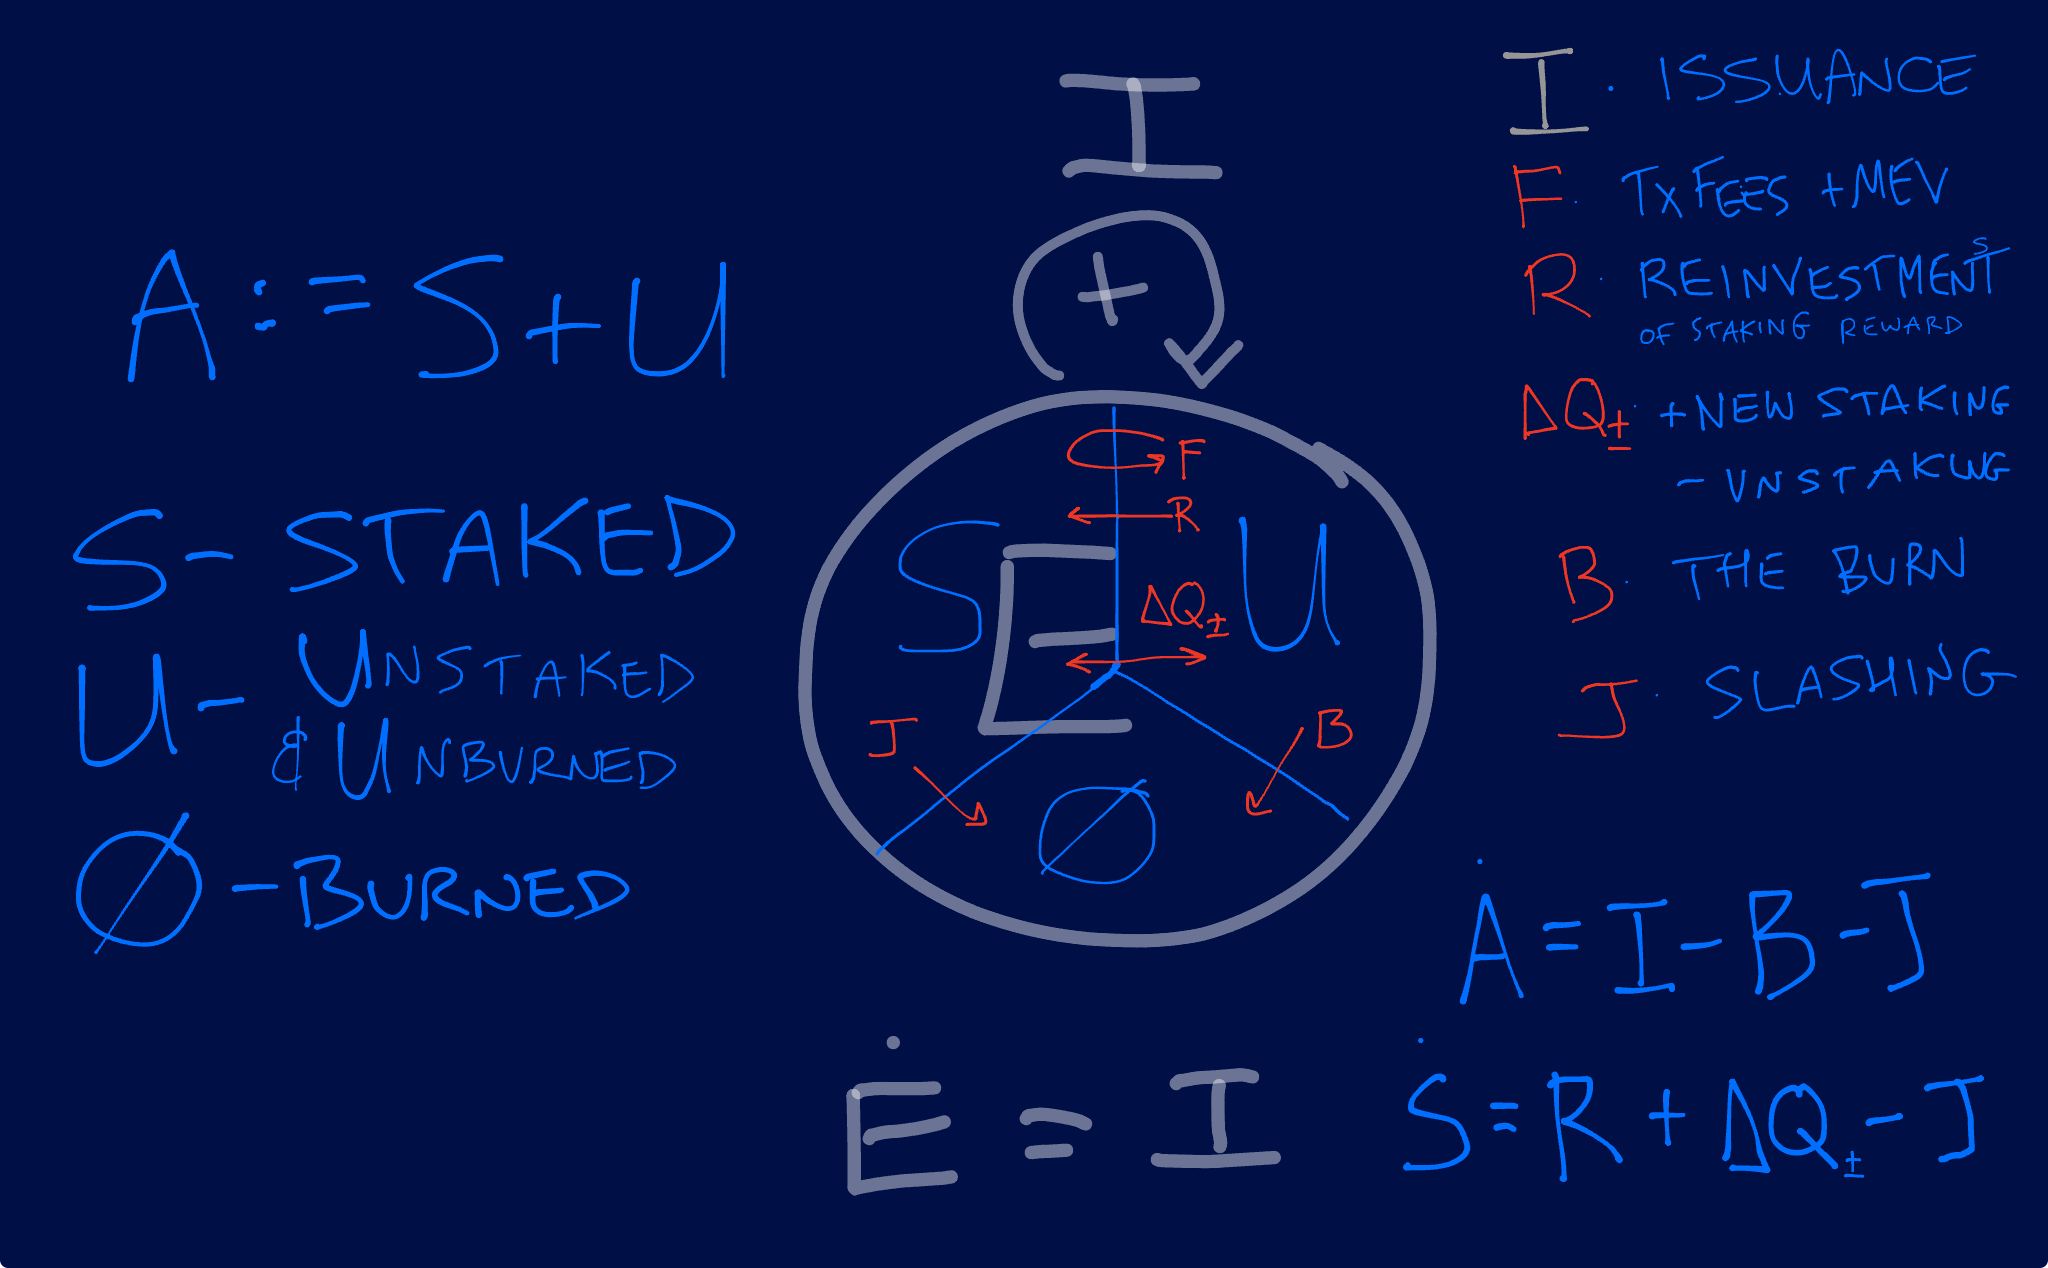 A := S+U
S- STAKED
U- UNSTAKED
& UNBURNED
Ø -BURNED
I
+
F
R
S
E
U
ΔQ±
J
B
Ø
Ė = I
I · ISSUANCE
F · TX FEES +MEV
R · REINVESTMENTS
OF STAKING REWARD
ΔQ± · +NEW STAKING
- UNSTAKING
B · THE BURN
J · SLASHING
Ȧ = I - B - J
Ṡ = R + ΔQ± - J